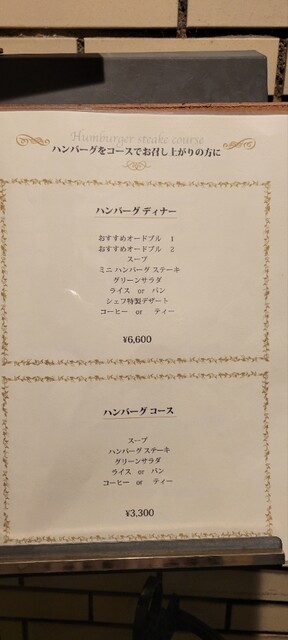 Humburger steake course
ハンバーグをコースでお召し上がりの方に
ハンバーグ ディナー
おすすめオードブル 1
おすすめオードブル 2
スープ
ミニ ハンバーグ ステーキ
グリーンサラダ
ライス or パン
シェフ特製デザート
コーヒー or ティー
¥6,600
ハンバーグ コース
スープ
ハンバーグ ステーキ
グリーンサラダ
ライス or パン
コーヒー or ティー
¥3,300